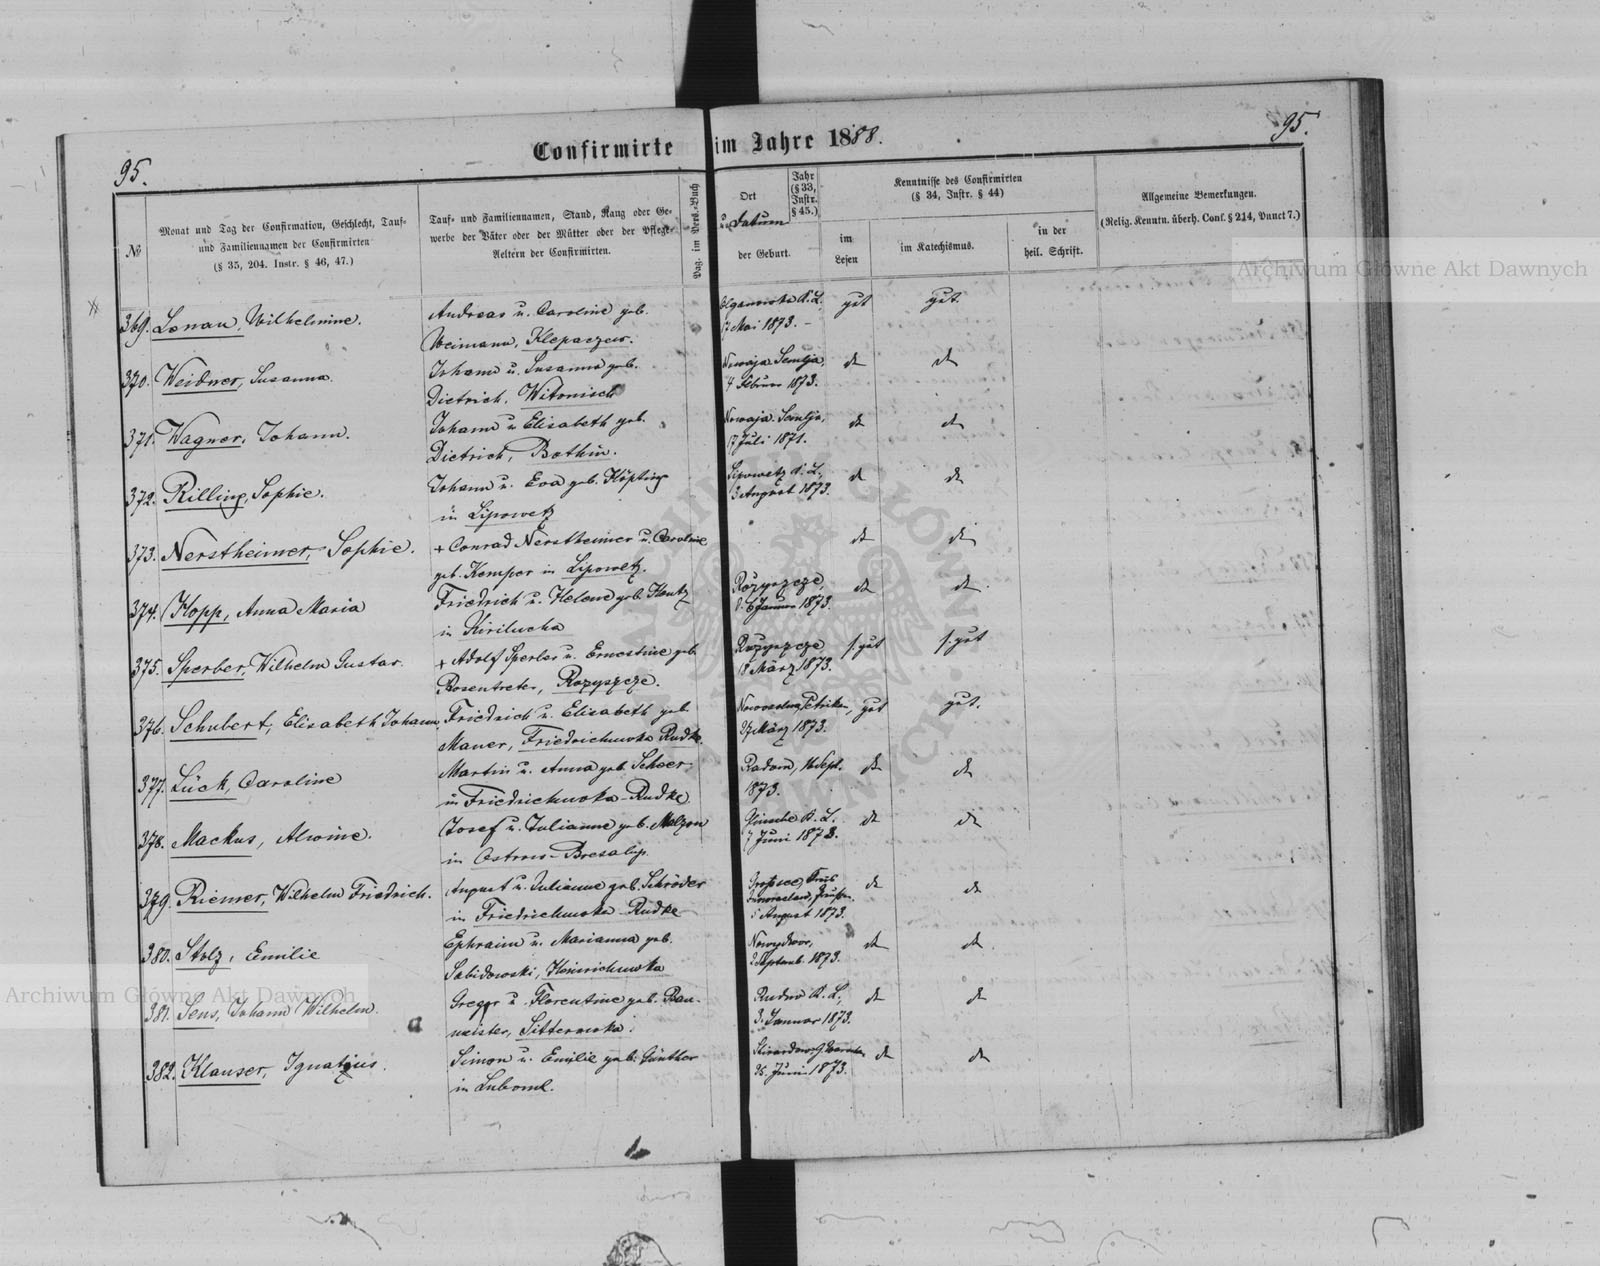 Confirmirte im Jahre 1888.
95.
95.
№
Monat und Tag der Confirmation, Geschlecht, Tauf-
und Familiennamen der Confirmirten
(§ 35, 204. Instr. § 46, 47.)
Tauf- und Familiennamen, Stand, Rang oder Ge-
werbe der Väter oder der Mütter oder der Pflege-
Aeltern der Confirmirten.
Pag. im Pers.-Buch
Ort
u. Datum
der Geburt.
Jahr
(§ 33,
Instr.
§ 45.)
Kenntnisse des Confirmirten
(§ 34, Instr. § 44)
im
Lesen
im Katechismus.
in der
heil. Schrift.
Allgemeine Bemerkungen.
(Relig. Kenntn. überh. Conf. § 214, Punct 7.)
369. Lonau, Wilhelmine.
Andreas u. Caroline geb.
Weimann, Klepaczew.
17 Mai 1873. –
gut
gut.
370. Weidner, Susanna.
Johann u. Susanna geb.
Dietrich, Witonisch
Nowaja Semlja,
4 Februar 1873.
dt
dt
371. Wagner, Johann.
Johann u Elisabeth geb.
Dietrich, Bothin.
Nowaja Semlja,
17 Juli 1871.
dt
dt
372. Rilling, Sophie.
Johann u. Eva geb. Höpting
in Lipowetz
Lipowetz d. L.,
3 August 1873.
dt
dt
373. Nerstheimer, Sophie.
+ Conrad Nerstheimer u. Caroline
geb. Kemper in Lipowetz.
dt
dt
374. Hopp, Anna Maria
Friedrich u. Helene geb. Hentz
in Kirilucha
Rożyszcze,
d. 6 Januar 1873.
dt
dt.
375. Sperber, Wilhelm Gustav.
+ Adolf Sperber u. Ernestine geb
Rosentreter, Rozyszcze.
Rożyszcze
18 März 1873.
s. gut
s. gut
376. Schubert, Elisabeth Johann.
Friedrich u. Elisabeth geb.
Maner, Friedrichuwka Rudke.
27 März 1873.
gut
gut.
377. Lück, Caroline
Martin u. Anna geb. Scheer
in Friedrichuwka-Rudke
Radom, 16 Sept.
1873.
dt
dt
378. Mackus, Alwine.
Josef u. Julianne geb. Melzer
in Ostrow-Bresalup.
7 Juni 1873.
dt
dt
379. Riemer, Wilhelm Friedrich.
August u. Julianne geb. Schröder
in Friedrichuwka Rudke
5 August 1873.
dt
dt
380. Stolz, Emilie
Ephraim u. Marianna geb.
Sabidowski, Heinrichuwka
Nowydwor,
2 Septemb. 1873.
dt
dt.
381. Sens, Johann Wilhelm.
Gregor u. Florentine geb. Bau-
meister, Sitterowka.
Rudno K. L.,
3. Januar 1873.
dt
dt
382. Klauser, Ignatius.
Simon u. Emilie geb. Günther
in Luboml.
26. Juni 1873.
dt
dt
Archiwum Główne Akt Dawnych
Archiwum Główne Akt Dawnych